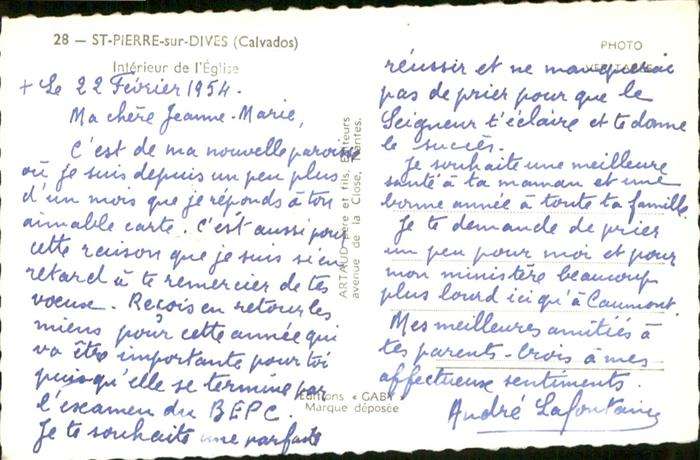 28 — ST-PIERRE-sur-DIVES (Calvados)
Intérieur de l'Église
PHOTO
+ Le 22 Février 1954.
Ma chère Jeanne-Marie,
C'est de ma nouvelle paroisse
où je suis depuis un peu plus
d'un mois que je réponds à ton
aimable carte. C'est aussi pour
cette raison que je suis si en
retard à te remercier de tes
voeux. Reçois en retour les
miens pour cette année qui
va être importante pour toi
puisqu'elle se termine par
l'examen du BEPC.
Je te souhaite une parfaite
ARTAUD Père et fils, Éditeurs
avenue de la Close, Nantes.
Editions « GABY »
Marque déposée
réussir et ne manquerai
pas de prier pour que le
Seigneur t'éclaire et te donne
le succès.
Je souhaite une meilleure
santé à ta maman et une
bonne année à toute ta famille
Je te demande de prier
un peu pour moi et pour
mon ministère beaucoup
plus lourd ici qu'à Caumont.
Mes meilleures amitiés à
tes parents - crois à mes
affectueux sentiments.
André Lafontaine